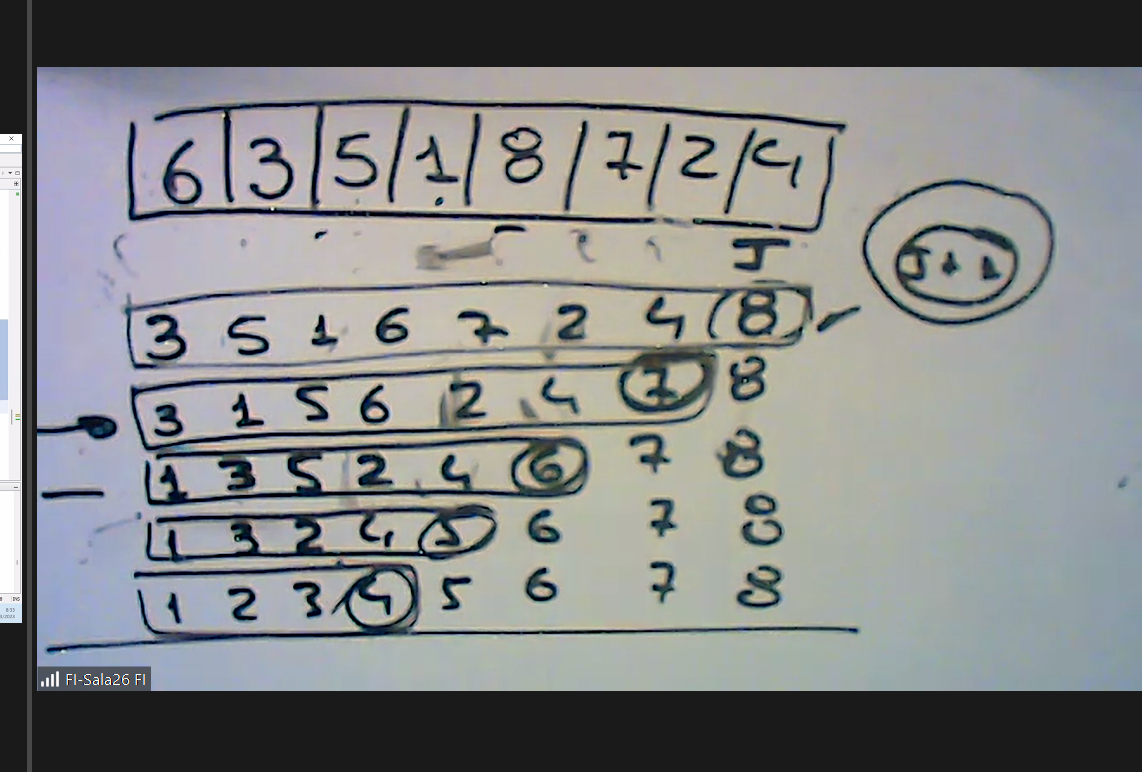 6 3 5 1 8 7 2 4
J
J+1
3 5 1 6 7 2 4 8
3 1 5 6 2 4 7 8
1 3 5 2 4 6 7 8
1 3 2 4 5 6 7 8
1 2 3 4 5 6 7 8
FI-Sala26 FI